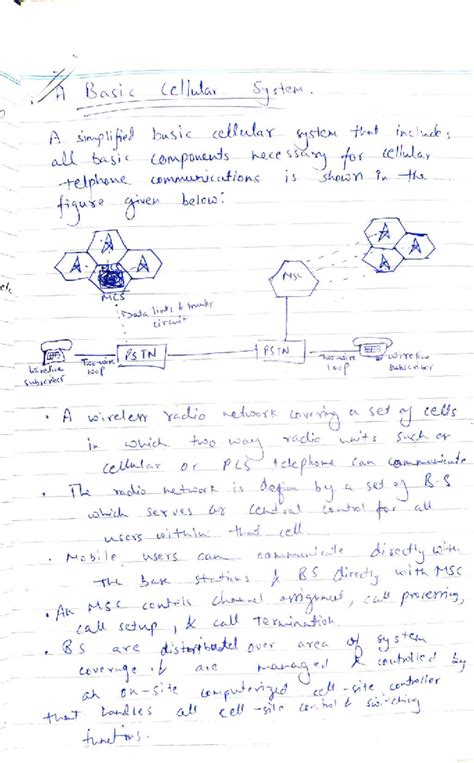 A Basic Cellular System.
A simplified basic cellular system that includes
all basic components necessary for cellular
telphone communications is shown in the
figure given below:
MSC
MCS
Data links & trunks
circuit
PSTN
PSTN
wireline
Subscriber
Two wire
loop
Two wire
loop
wireline
Subscriber
• A wireless radio network covering a set of cells
in which two way radio units such as
cellular or PCS telephone can communicate
• The radio network is define by a set of B.S
which serves as central control for all
users within that cell
• Mobile users can communicate directly with
the base stations & BS directly with MSC
• An MSC controls channel assignment, call processing,
call setup, & call termination.
• BS are distributed over area of system
coverage & are managed & controlled by
an on-site computerized cell-site controller
that handles all cell-site control & switching
functions.